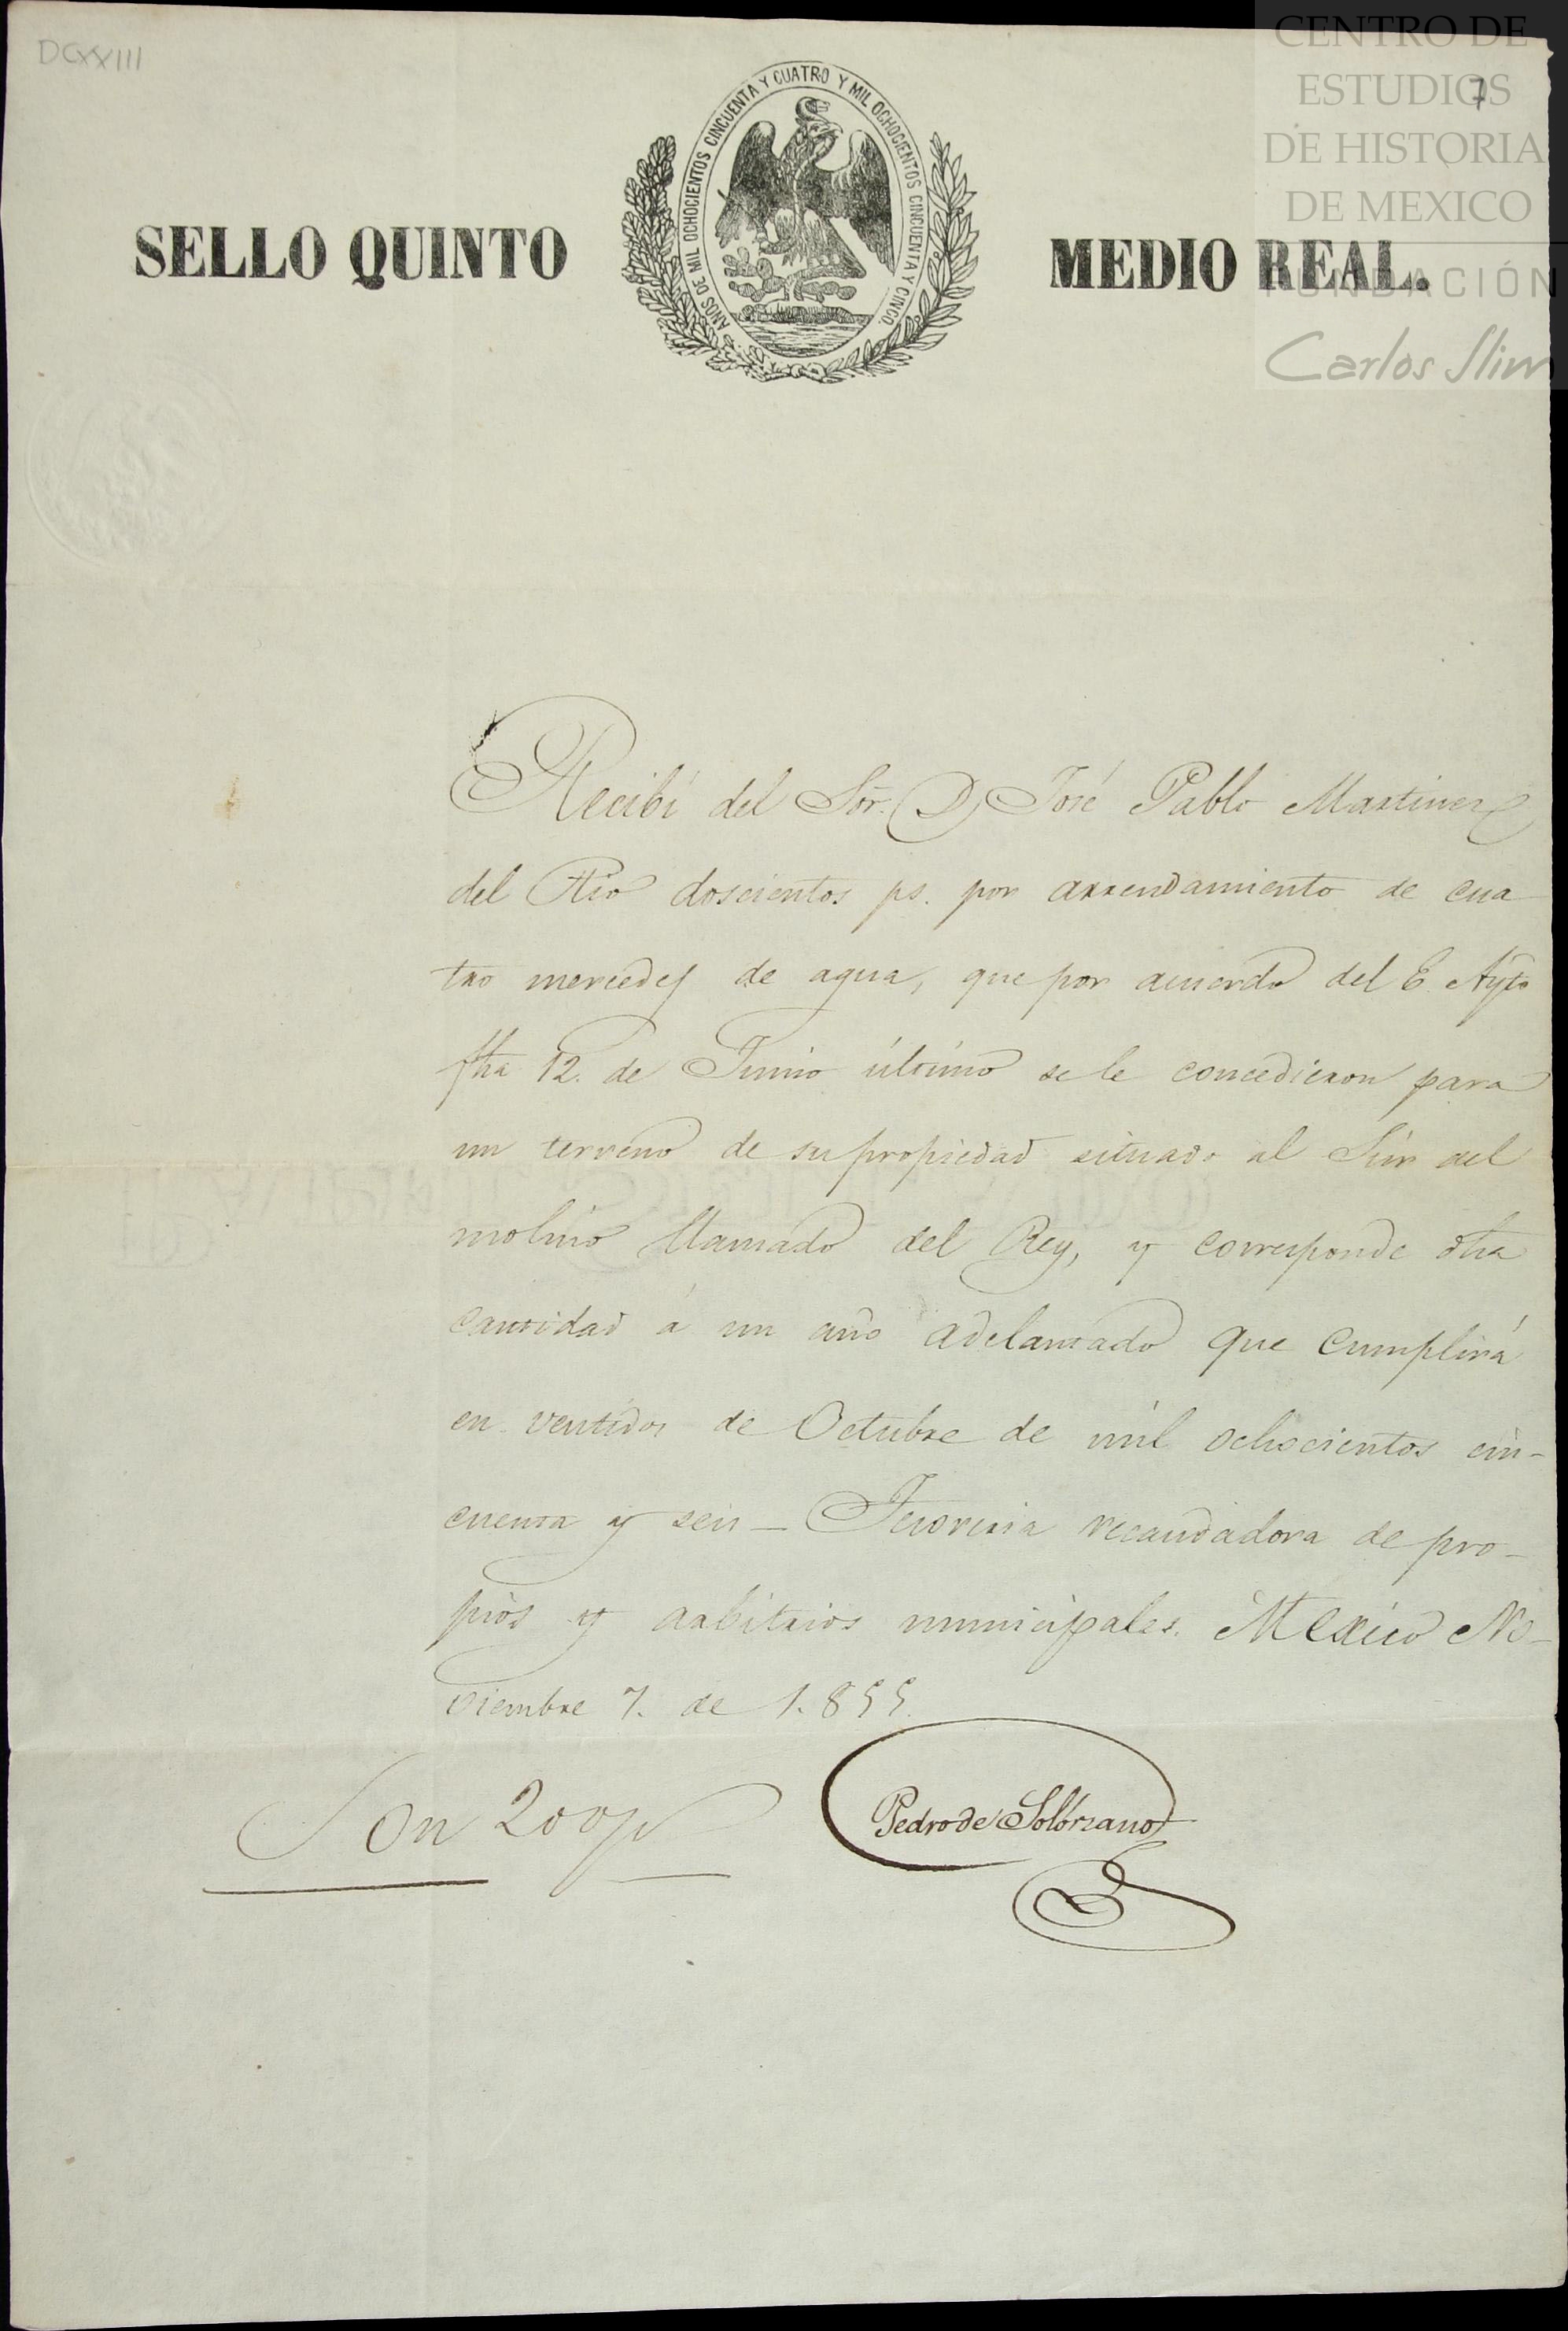 DCXXIII
CENTRO DE
ESTUDIOS
7
DE HISTORIA
DE MEXICO
FUNDACIÓN
Carlos Slim
SELLO QUINTO
AÑOS DE MIL OCHOCIENTOS CINCUENTA Y CUATRO Y MIL OCHOCIENTOS CINCUENTA Y CINCO.
MEDIO REAL.
Recibí del Sor. D José Pablo Martinez
del Rio doscientos ps. por arrendamiento de cua
tro mercedes de agua, que por acuerdo del E. Ayto
fha 12. de Junio último se le concedieron para
un terreno de su propiedad situado al Súr del
molino llamado del Rey, y corresponde dha
cantidad á un año adelantado que cumplirá
en ventidos de Octubre de mil ochocientos cin-
cuenta y seis – Tesoreria recaudadora de pro-
pios y arbitrios municipales. Mexico No-
viembre 7. de 1.855.
Son 200 ps
Pedro de Solórzano